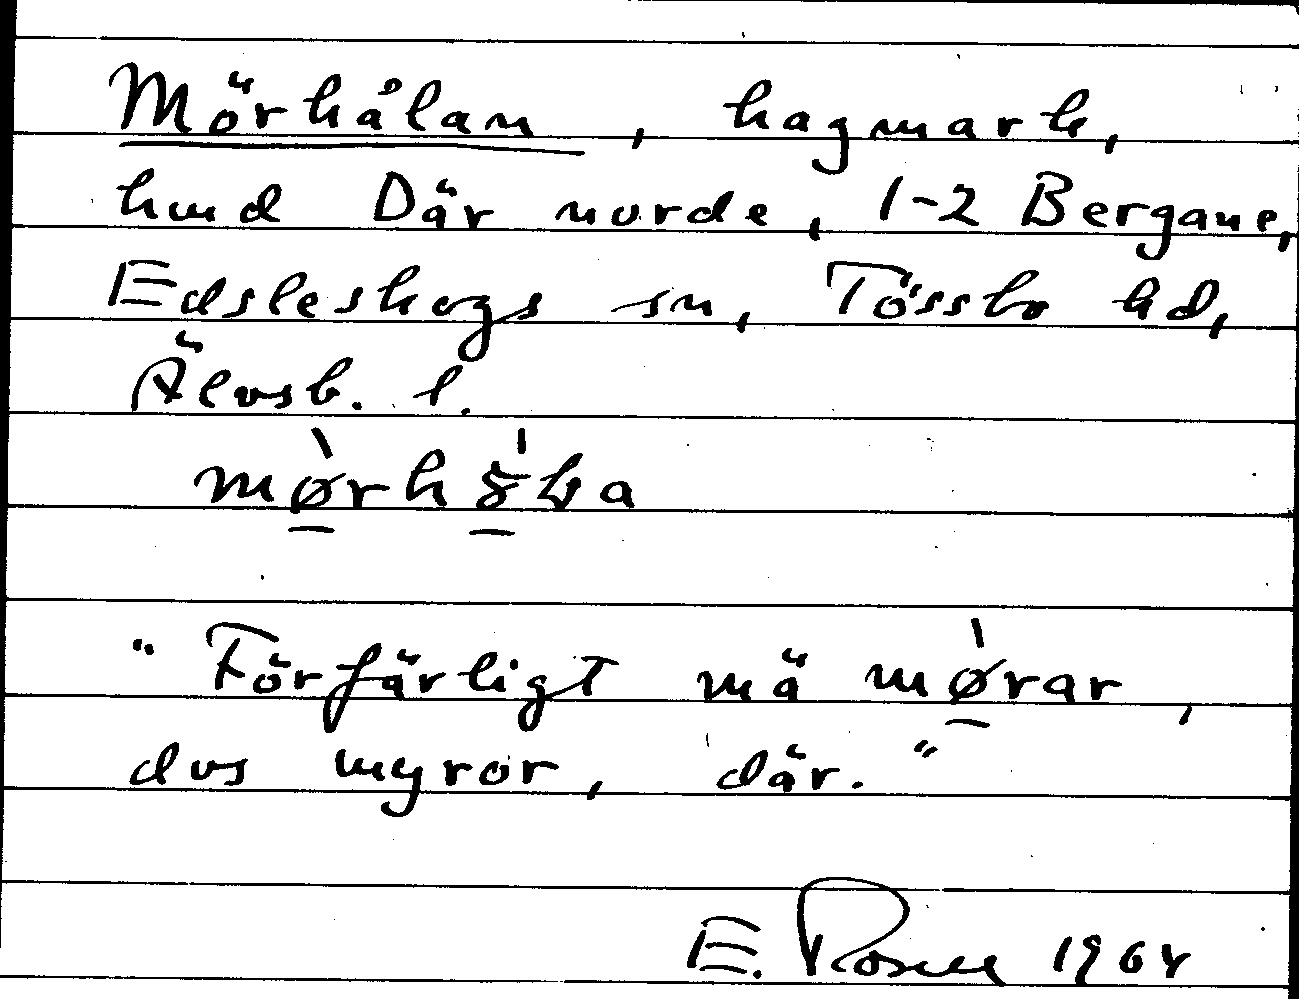 Mörhålan, hagmark,
hmd Där norde, 1-2 Bergane,
Edsleskogs sn, Tössbo hd,
Älvsb. l.
"Förfärligt mä mø̀rar,
dvs myror, där."
E. Rosell 1964